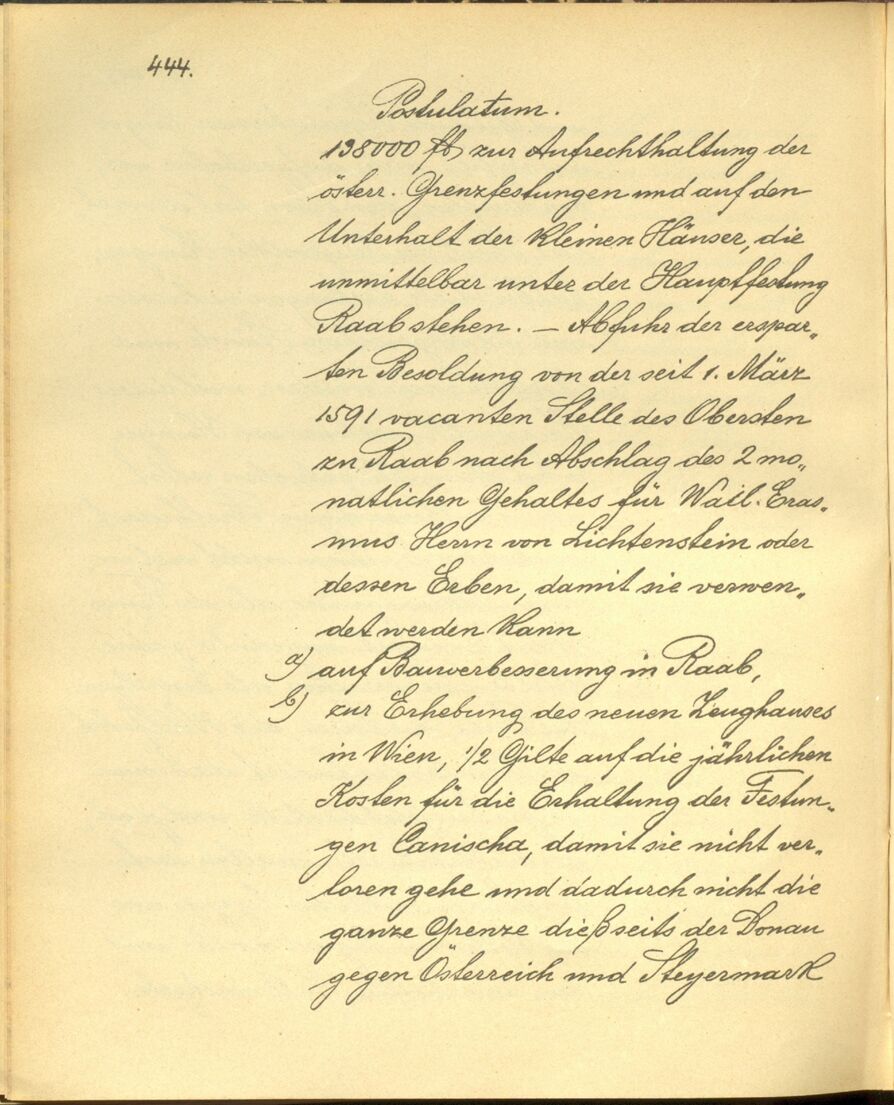 444.
Postulatum.
138000 fl zur Aufrechthaltung der
österr. Grenzfestungen und auf den
Unterhalt der kleinen Häuser, die
unmittelbar unter der Hauptfestung
Raab stehen. — Abfuhr der erspar„
ten Besoldung von der seit 1. März
1591 vacanten Stelle des Obersten
zu Raab nach Abschlag des 2 mo„
natlichen Gehaltes für Wail. Eras„
mus Herrn von Lichtenstein oder
dessen Erben, damit sie verwen„
det werden kann
a) auf Bauverbesserung in Raab,
b) zur Erhebung des neuen Zeughauses
in Wien, 1/2 Gilte auf die jährlichen
Kosten für die Erhaltung der Festun„
gen Canischa, damit sie nicht ver„
loren gehe und dadurch nicht die
ganze Grenze dießseits der Donau
gegen Österreich und Steyermark